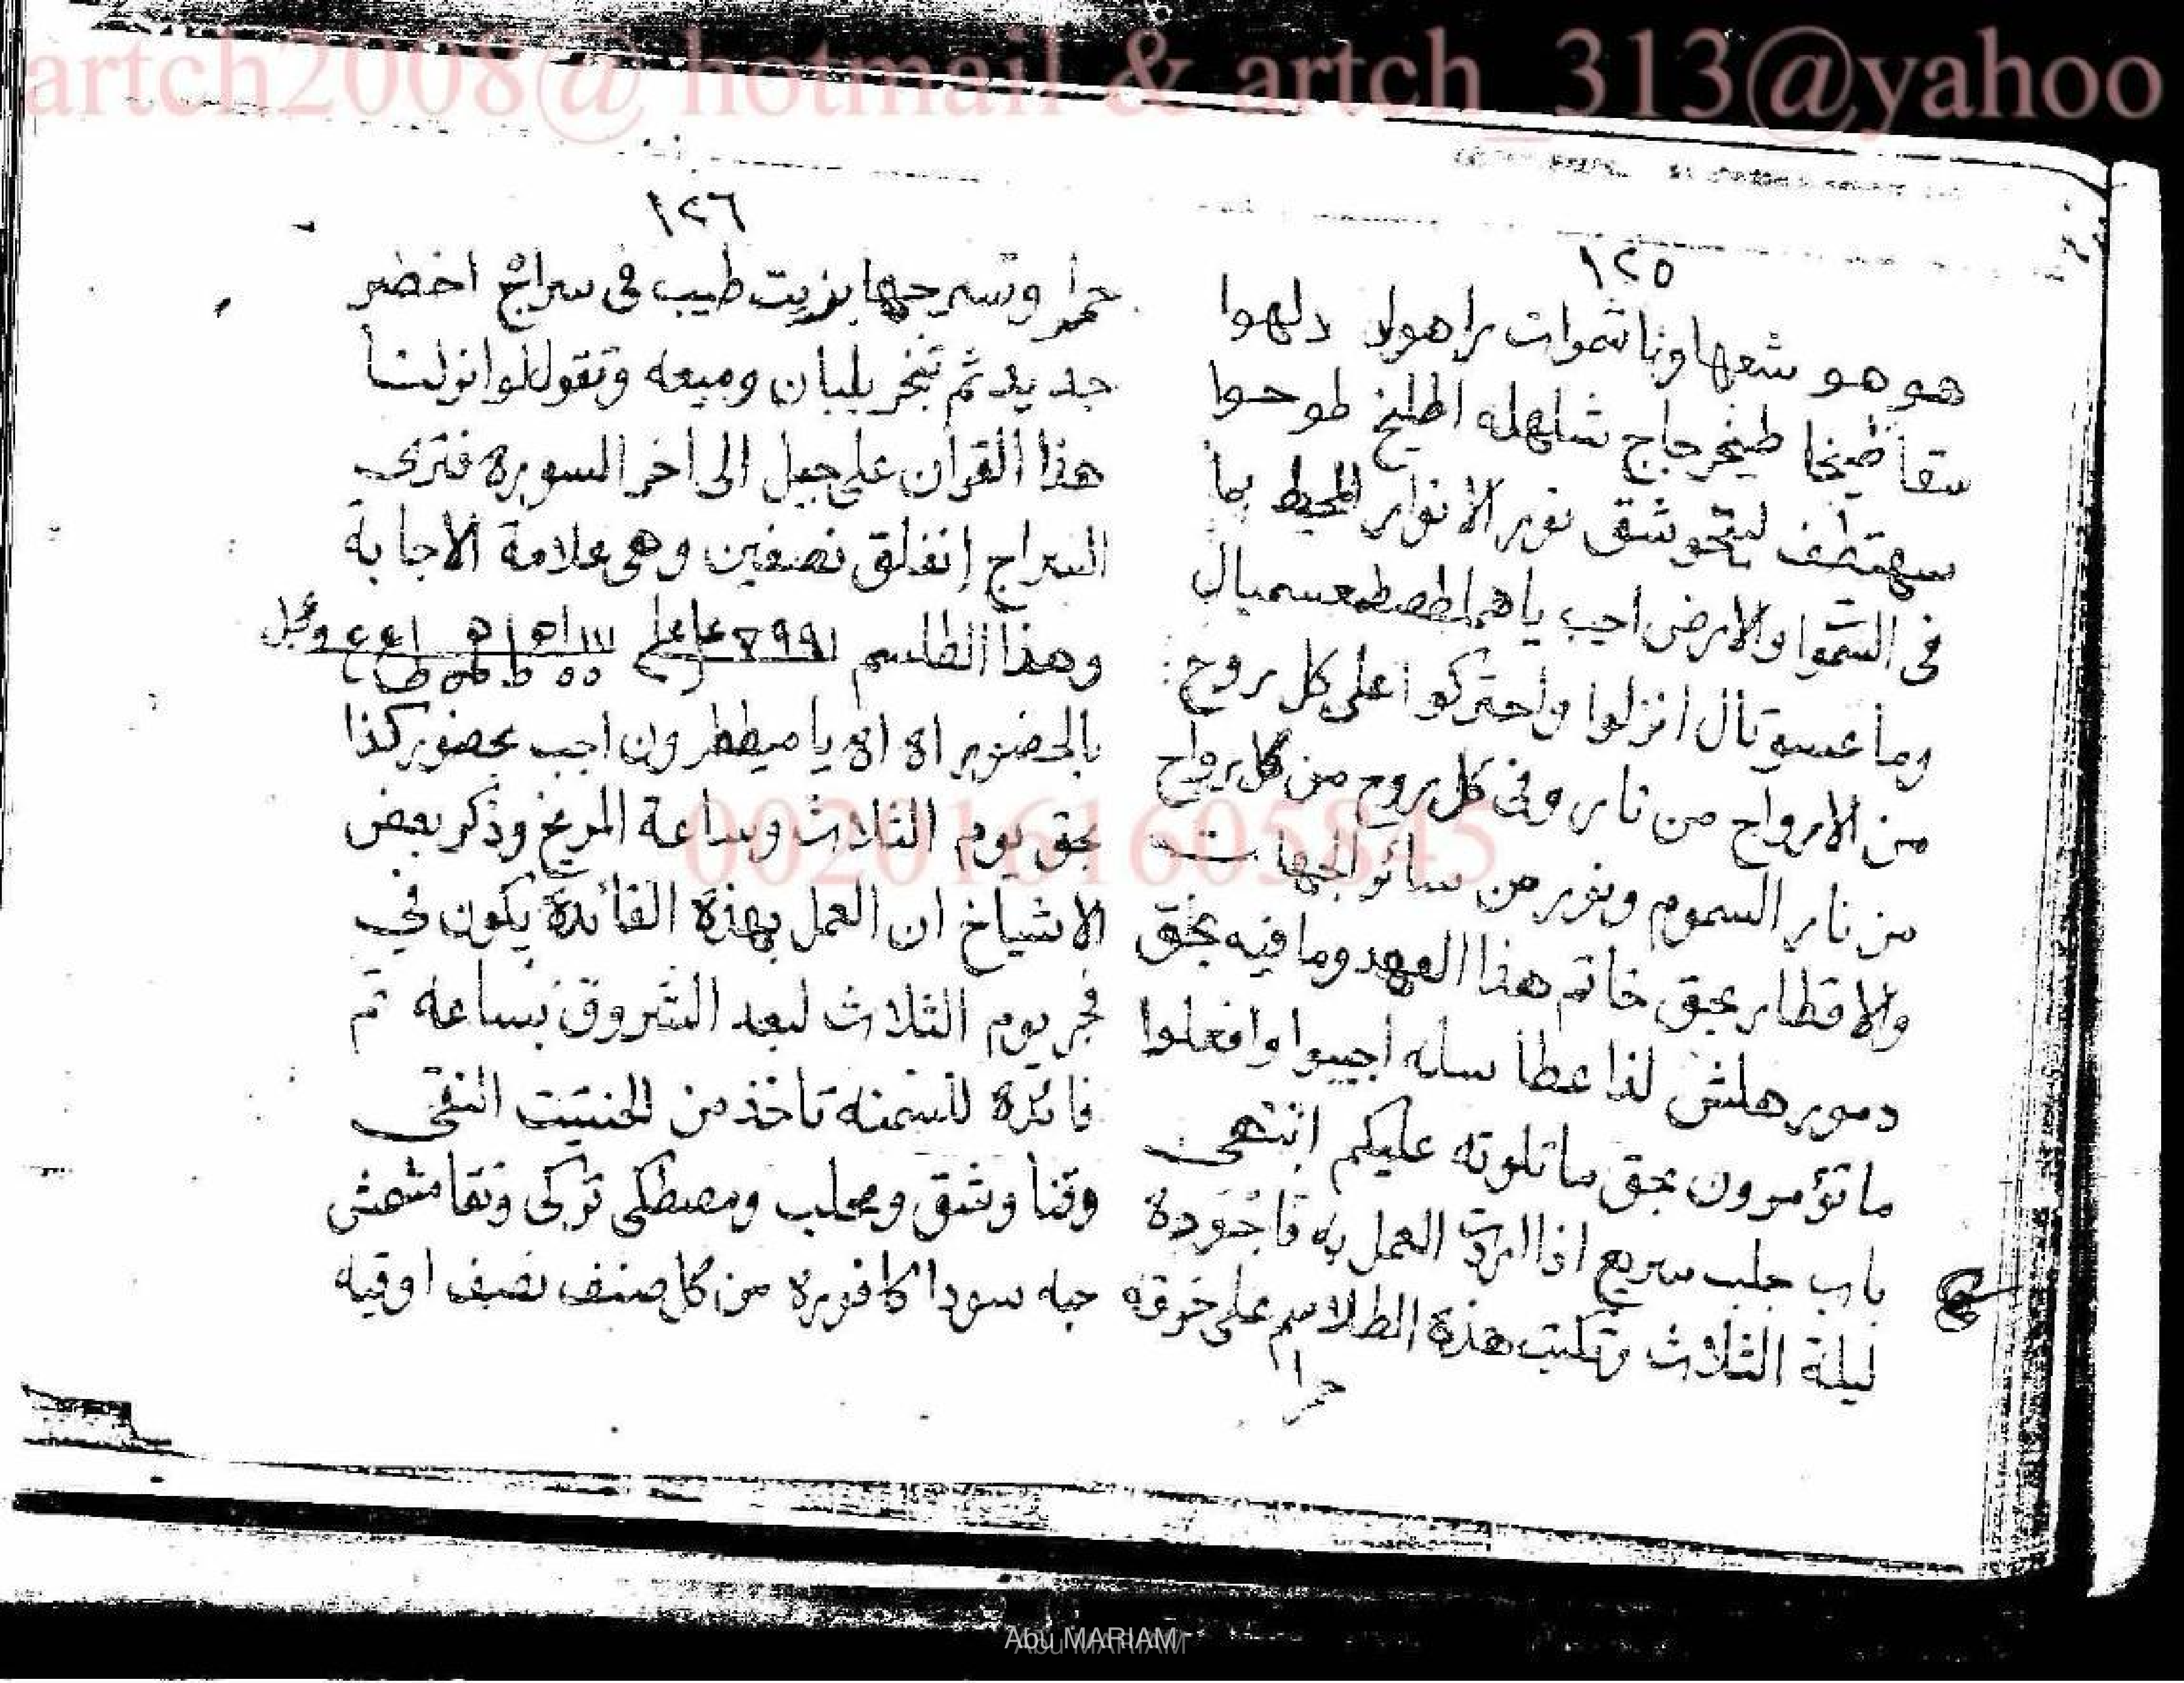 artch2008@ hotmail & artch_313@yahoo
١٢٥
هو هو شعها ونا شموات براهولا دلهوا
سقا طيخا طيخرحاج شلهله اطليخ طوحوا
سهقطف ليتحوشق نور الانوار المحيط بما
فى السموا والارض اجب يا
وما عسوتال انزلوا واحتركوا اعلى كل روح
من الارواح من نار وفى كل روح من كل رواح
من نار السموم ونور من سائر الجهات
والاقطار بحق خاتم هذا العهد وما فيه بحق
دمور هلش لذا عطا سله اجيبوا وافعلوا
ما تؤمرون بحق ما تلوته عليكم انتهى
باب جلب سريع اذا اردت العمل به فاجوده
ليلة الثلاث وتكتب هذه الطلاسم على خرقه
حمرا
١٢٦
حمرا وتسرجها بزيت طيب فى سراج اخضر
جديد ثم تبخر بلبان وميعه وتقول لو انزلنا
هذا القران على جبل الى اخر السوره فترى
السراج انفلق نصفين وهى علامة الاجابة
وهذا الطلسم
بالحضور اه اه يا ميططرون اجب بحضور كذا
بحق يوم الثلاث وساعة المريخ وذكر بعض
الاشياخ ان العمل بهذه الفائدة يكون في
فجر يوم الثلاث لبعد الشروق بساعه تم
فائدة للسمنه تاخذ من الحنتيت النقى
وقنا وشق ومحلب ومصطكى تركى ونقا مشمش
حبه سودا كافوره من كل صنف نصف اوقيه
0020161605845
Abu MARIAM